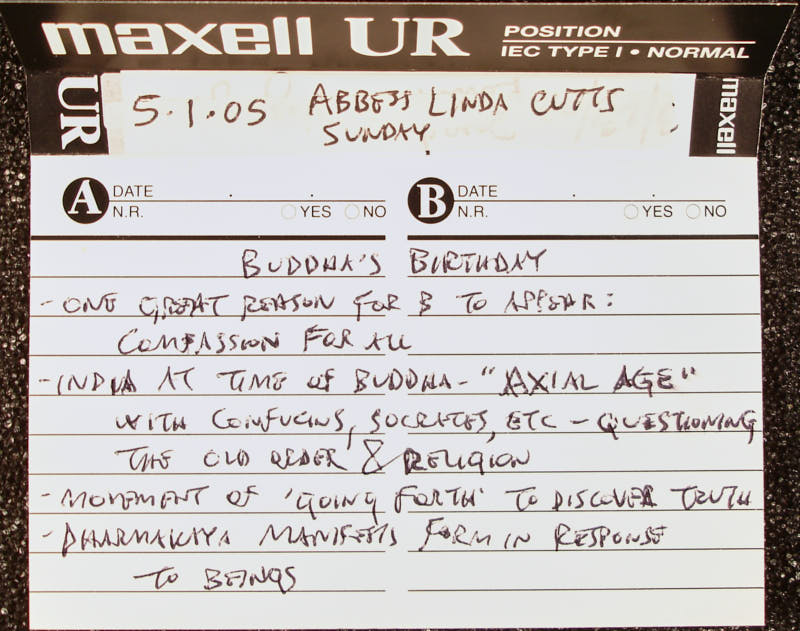 maxell UR POSITION
IEC TYPE I • NORMAL
UR
5.1.05 ABBESS LINDA CUTTS
SUNDAY
maxell
A DATE . . B DATE . .
N.R. YES NO N.R. YES NO
BUDDHA'S BIRTHDAY
- ONE GREAT REASON FOR B TO APPEAR:
COMPASSION FOR ALL
- INDIA AT TIME OF BUDDHA - "AXIAL AGE"
WITH CONFUCIUS, SOCRATES, ETC - QUESTIONING
THE OLD ORDER & RELIGION
- MOVEMENT OF 'GOING FORTH' TO DISCOVER TRUTH
- DHARMAKAYA MANIFESTS FORM IN RESPONSE
TO BEINGS